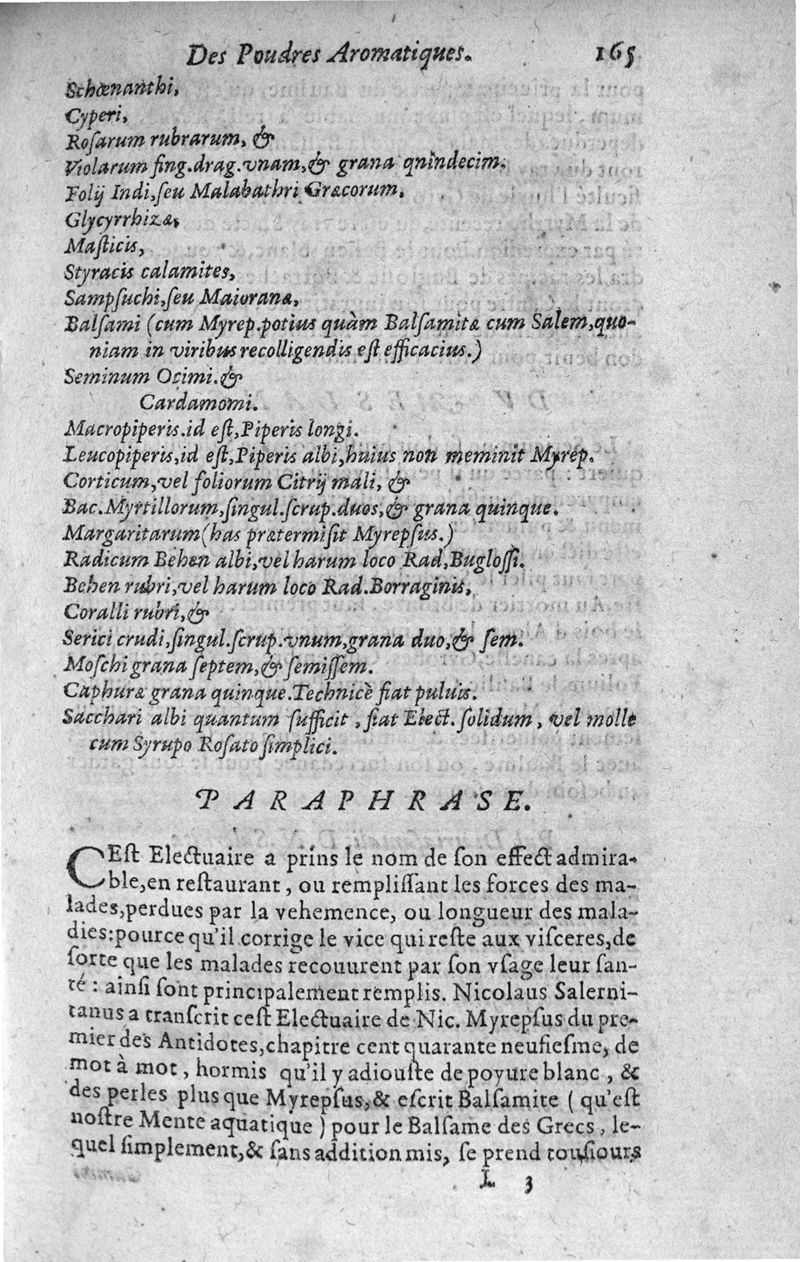 Des Poudres Aromatiques. 165
Schœnanthi,
Cyperi,
Roſarum rubrarum, &
Violarum ſing.drag.vnam,& grana qnindecim.
Folij Indi,ſeu Malabathri Græcorum,
Glycyrrhizæ,
Maſticis,
Styracis calamites,
Sampſuchi,ſeu Maioranæ,
Balſami (cum Myrep.potius quàm Balſamitæ cum Salem,quo-
niam in viribus recolligendis eſt efficacius.)
Seminum Ocimi.&
Cardamomi.
Macropiperis.id eſt,Piperis longi.
Leucopiperis,id eſt,Piperis albi,huius non meminit Myrep.
Corticum,vel foliorum Citrij mali, &
Bac.Myrtillorum,ſingul.ſcrup.duos,& grana quinque.
Margaritarum(has prætermiſit Myrepſus.)
Radicum Behen albi,vel harum loco Rad,Bugloſſi.
Behen rubri,vel harum loco Rad.Borraginis,
Coralli rubri,&
Serici crudi,ſingul.ſcrup.vnum,grana duo,& ſem.
Moſchi grana ſeptem,& ſemiſſem.
Caphuræ grana quinque.Technicè fiat puluis.
Sacchari albi quantum ſufficit, fiat Elect. ſolidum, vel molle
cum Syrupo Roſato ſimplici.
PARAPHRASE.
CEſt Electuaire a prins le nom de ſon effect admira-
ble,en reſtaurant, ou rempliſſant les forces des ma-
lades,perdues par la vehemence, ou longueur des mala-
dies:pource qu'il corrige le vice qui reſte aux viſceres,de
ſorte que les malades recouurent par ſon vſage leur ſan-
té : ainſi ſont principalement remplis. Nicolaus Salerni-
tanus a tranſcrit ceſt Electuaire de Nic. Myrepſus du pre-
mier des Antidotes,chapitre cent quarante neufieſme, de
mot à mot, hormis qu'il y adiouſte de poyure blanc, &
des perles plus que Myrepſus,& eſcrit Balſamite ( qu'eſt
noſtre Mente aquatique ) pour le Balſame des Grecs, le-
quel ſimplement,& ſans addition mis, ſe prend touſiours
L 3